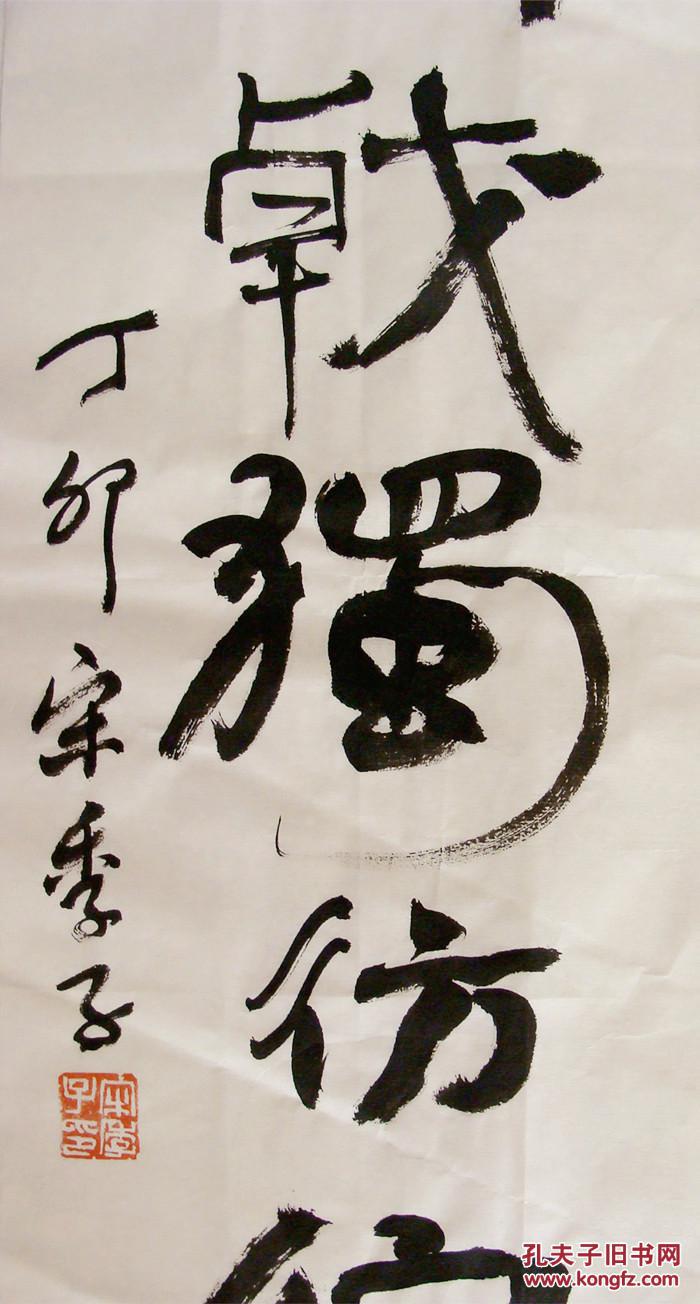 戟獨彷
丁卯宋季子
宋季子印
孔夫子旧书网
www.kongfz.com